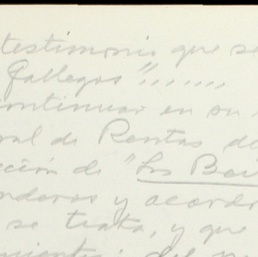 testimonio que se
Gallegos",......
continuar en su
ral de Rentas de
ción de "Los Bai
nderos y acord
se trata, y que